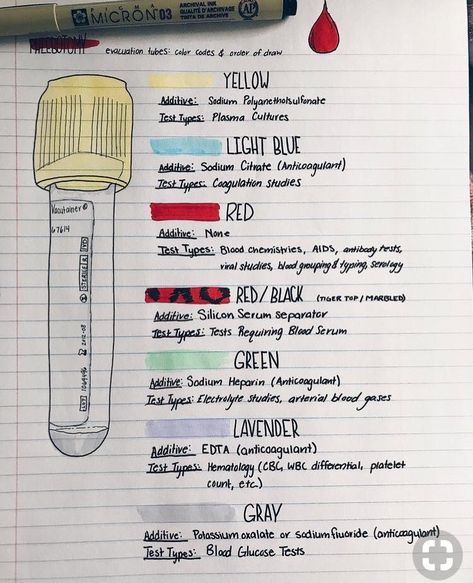 SAKURA
PIGMA
MICRON 03
ARCHIVAL INK
QUALITE D'ARCHIVAGE
TINTA DE ARCHIVO
AP
PHLEBOTOMY
evacuation tubes: color codes & order of draw
YELLOW
Additive: Sodium Polyanetholsulfonate
Test Types: Plasma Cultures
LIGHT BLUE
Additive: Sodium Citrate (Anticoagulant)
Test Types: Coagulation studies
Vacutainer®
67614
STERILE
RED
Additive: None
Test Types: Blood Chemistries, AIDS, antibody tests,
viral studies, blood grouping & typing, serology
RED/BLACK (TIGER TOP / MARBLED)
Additive: Silicon Serum separator
Test Types: Tests Requiring Blood Serum
2012-08
GREEN
Additive: Sodium Heparin (Anticoagulant)
Test Types: Electrolyte studies, arterial blood gases
LAVENDER
Additive: EDTA (anticoagulant)
Test Types: Hematology (CBC, WBC differential, platelet
count, etc.)
GRAY
Additive: Potassium oxalate or sodium fluoride (anticoagulant)
Test Types: Blood Glucose Tests